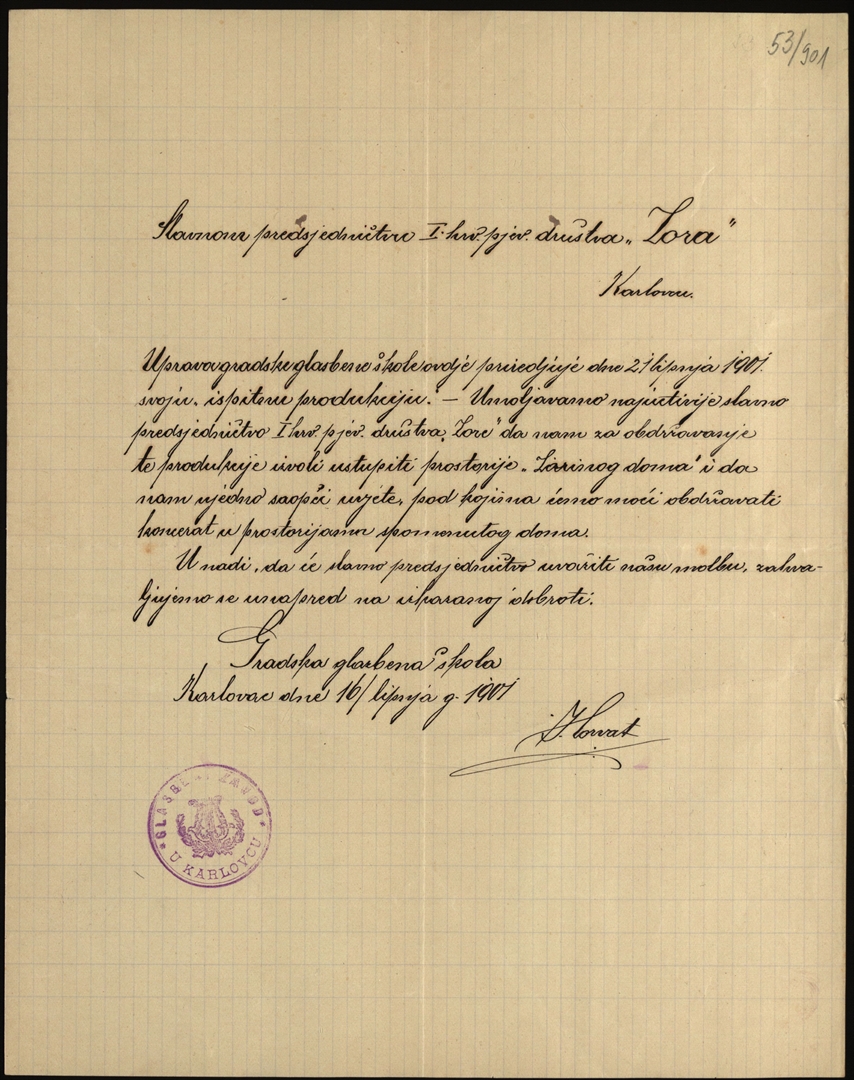 53/901
Slavnom predsjedničtvu I. hrv. pjev. družtva „Zora“
Karlovcu.
Uprava gradske glasbene škole ovdje priredjuje dne 21 lipnja 1901.
svoju „ispitnu produkciju.“ — Umoljavamo najuctivije slavno
predsjedničtvo I hrv. pjev. družtva „Zore“ da nam za obdržavanje
te produkcije izvoli ustupiti prostorije „Zorinog doma“ i da
nam ujedno saopći uvjete, pod kojima ćemo moći obdržavati
koncerat u prostorijama spomenutog doma.
U nadi, da će slavno predsjedničtvo uvažiti našu molbu, zahva-
ljujemo se unapred na iskazanoj dobroti.
Gradska glasbena škola
Karlovac dne 16/ lipnja g. 1901
Horvat
GLASBENI ZAVOD
U KARLOVCU